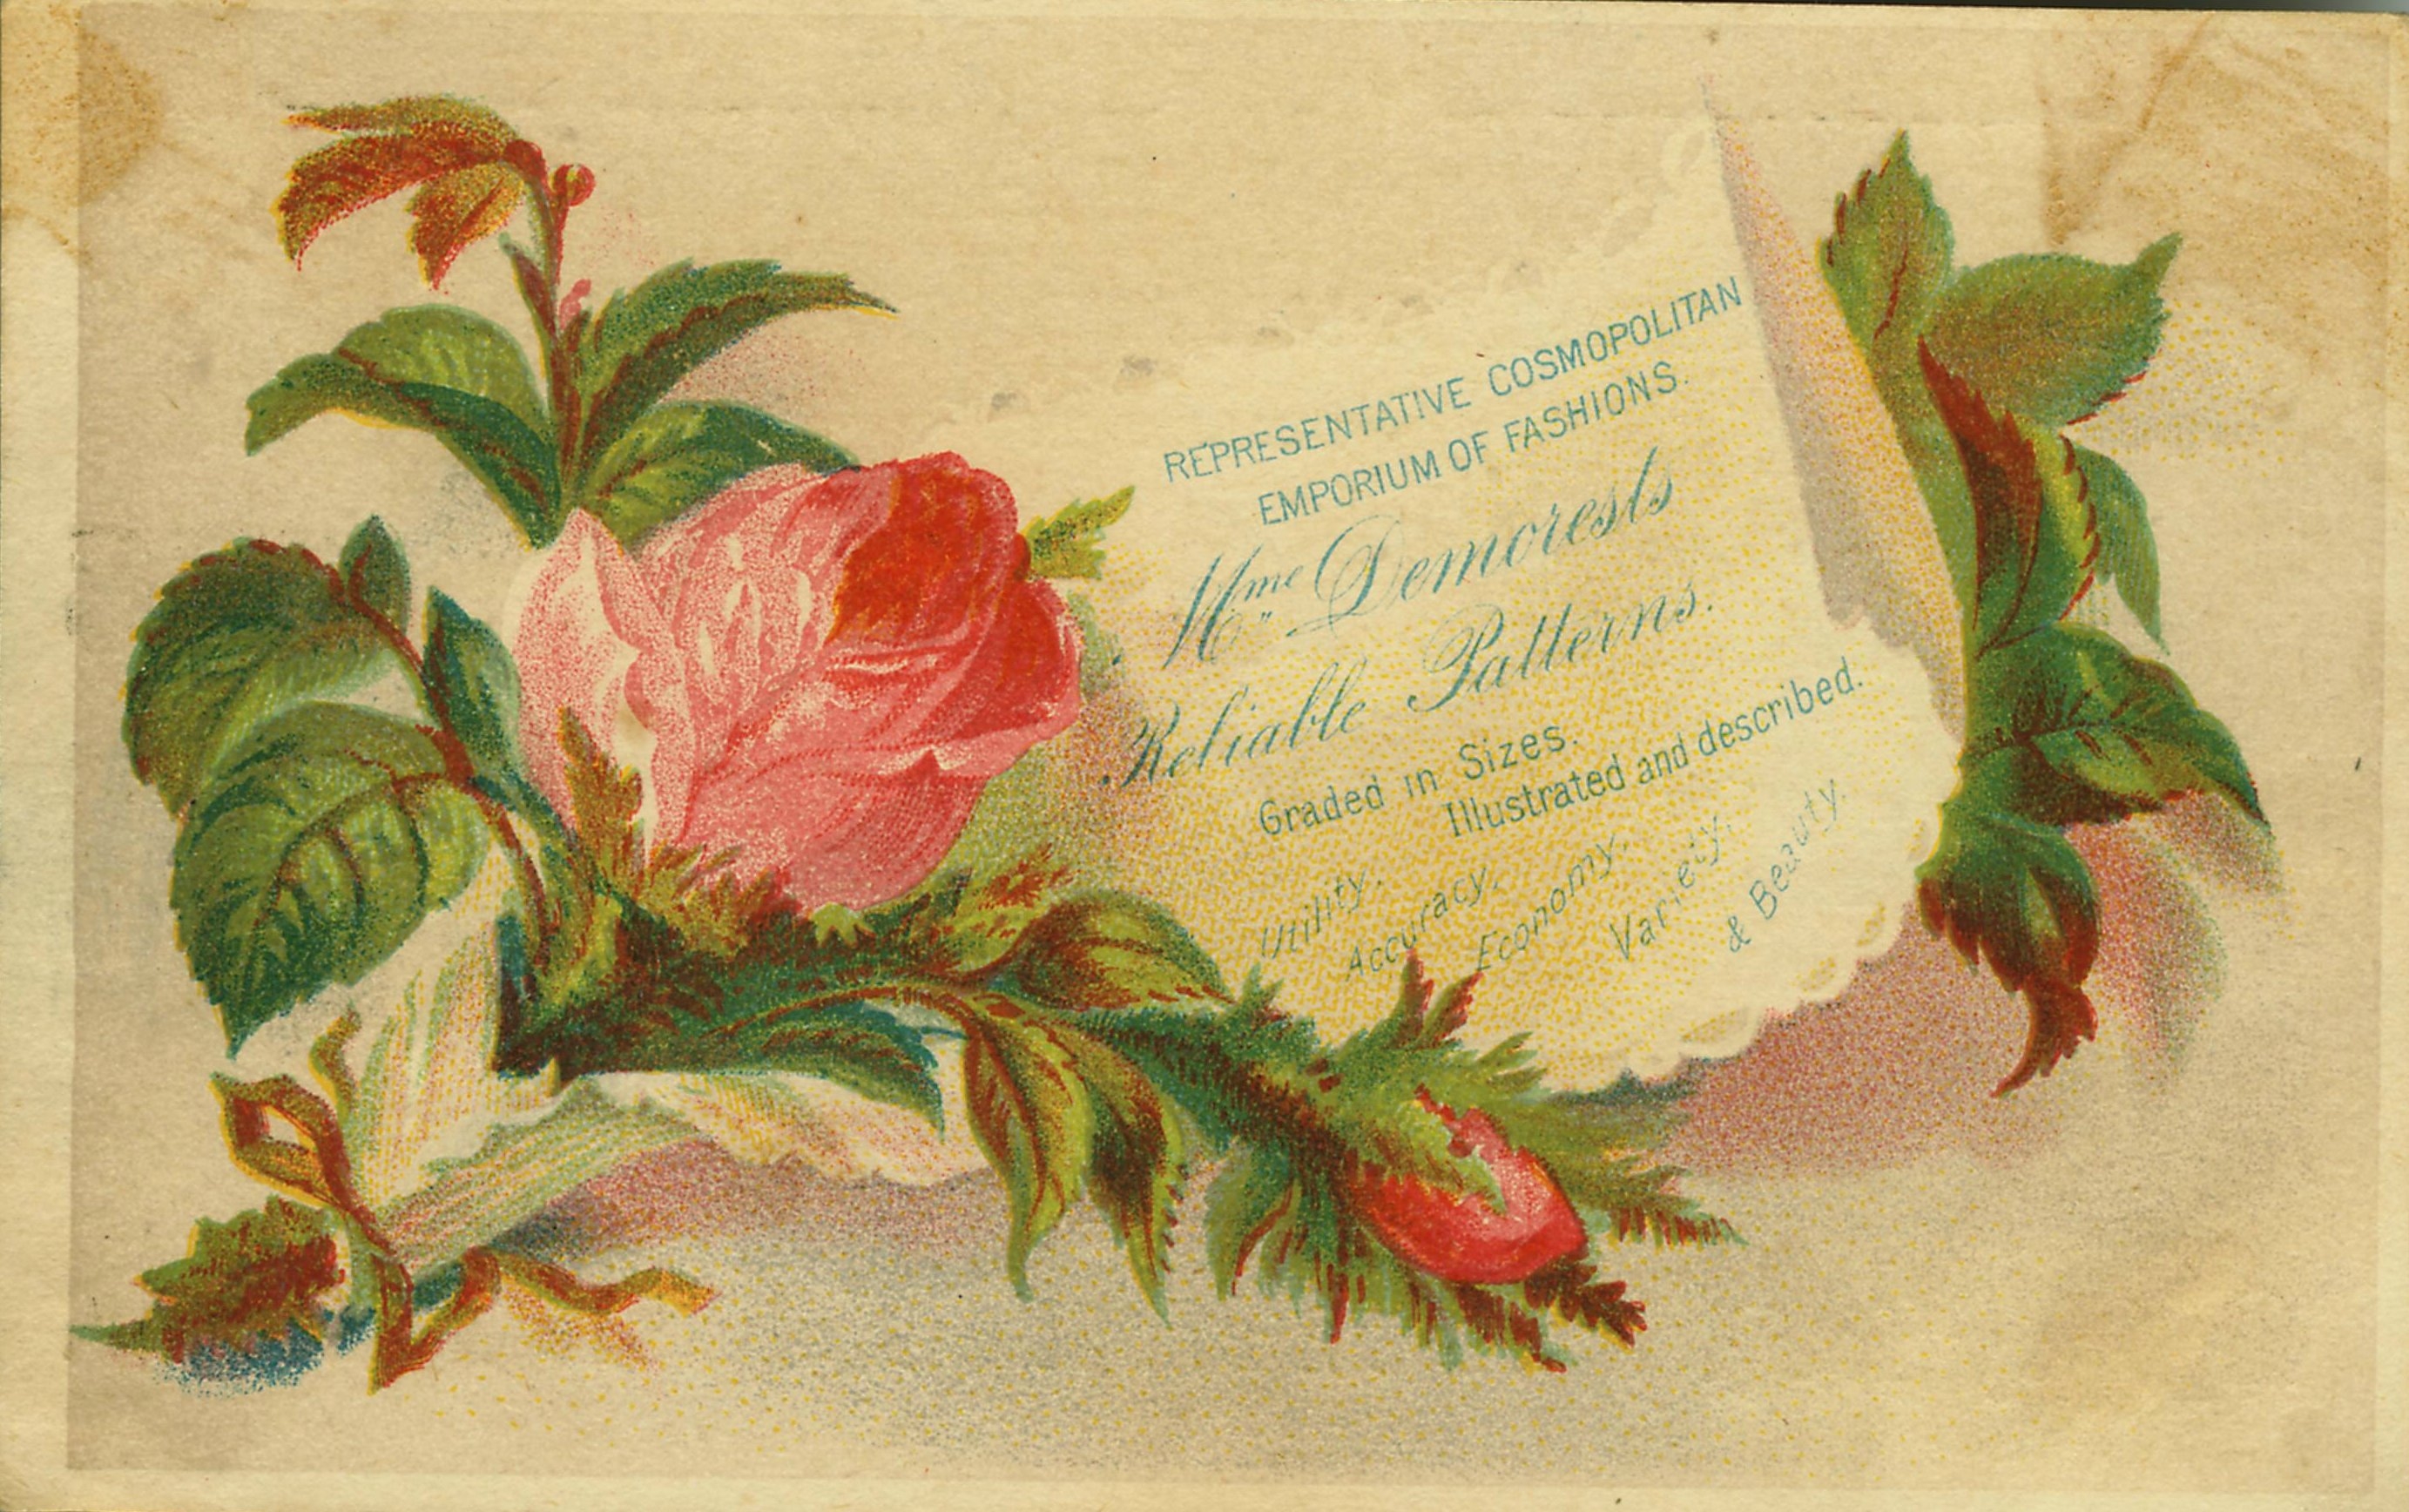 REPRESENTATIVE COSMOPOLITAN
EMPORIUM OF FASHIONS.
Mme Demorests
Reliable Patterns.
Graded in Sizes.
Illustrated and described.
Utility,
Accuracy,
Economy,
Variety,
& Beauty.